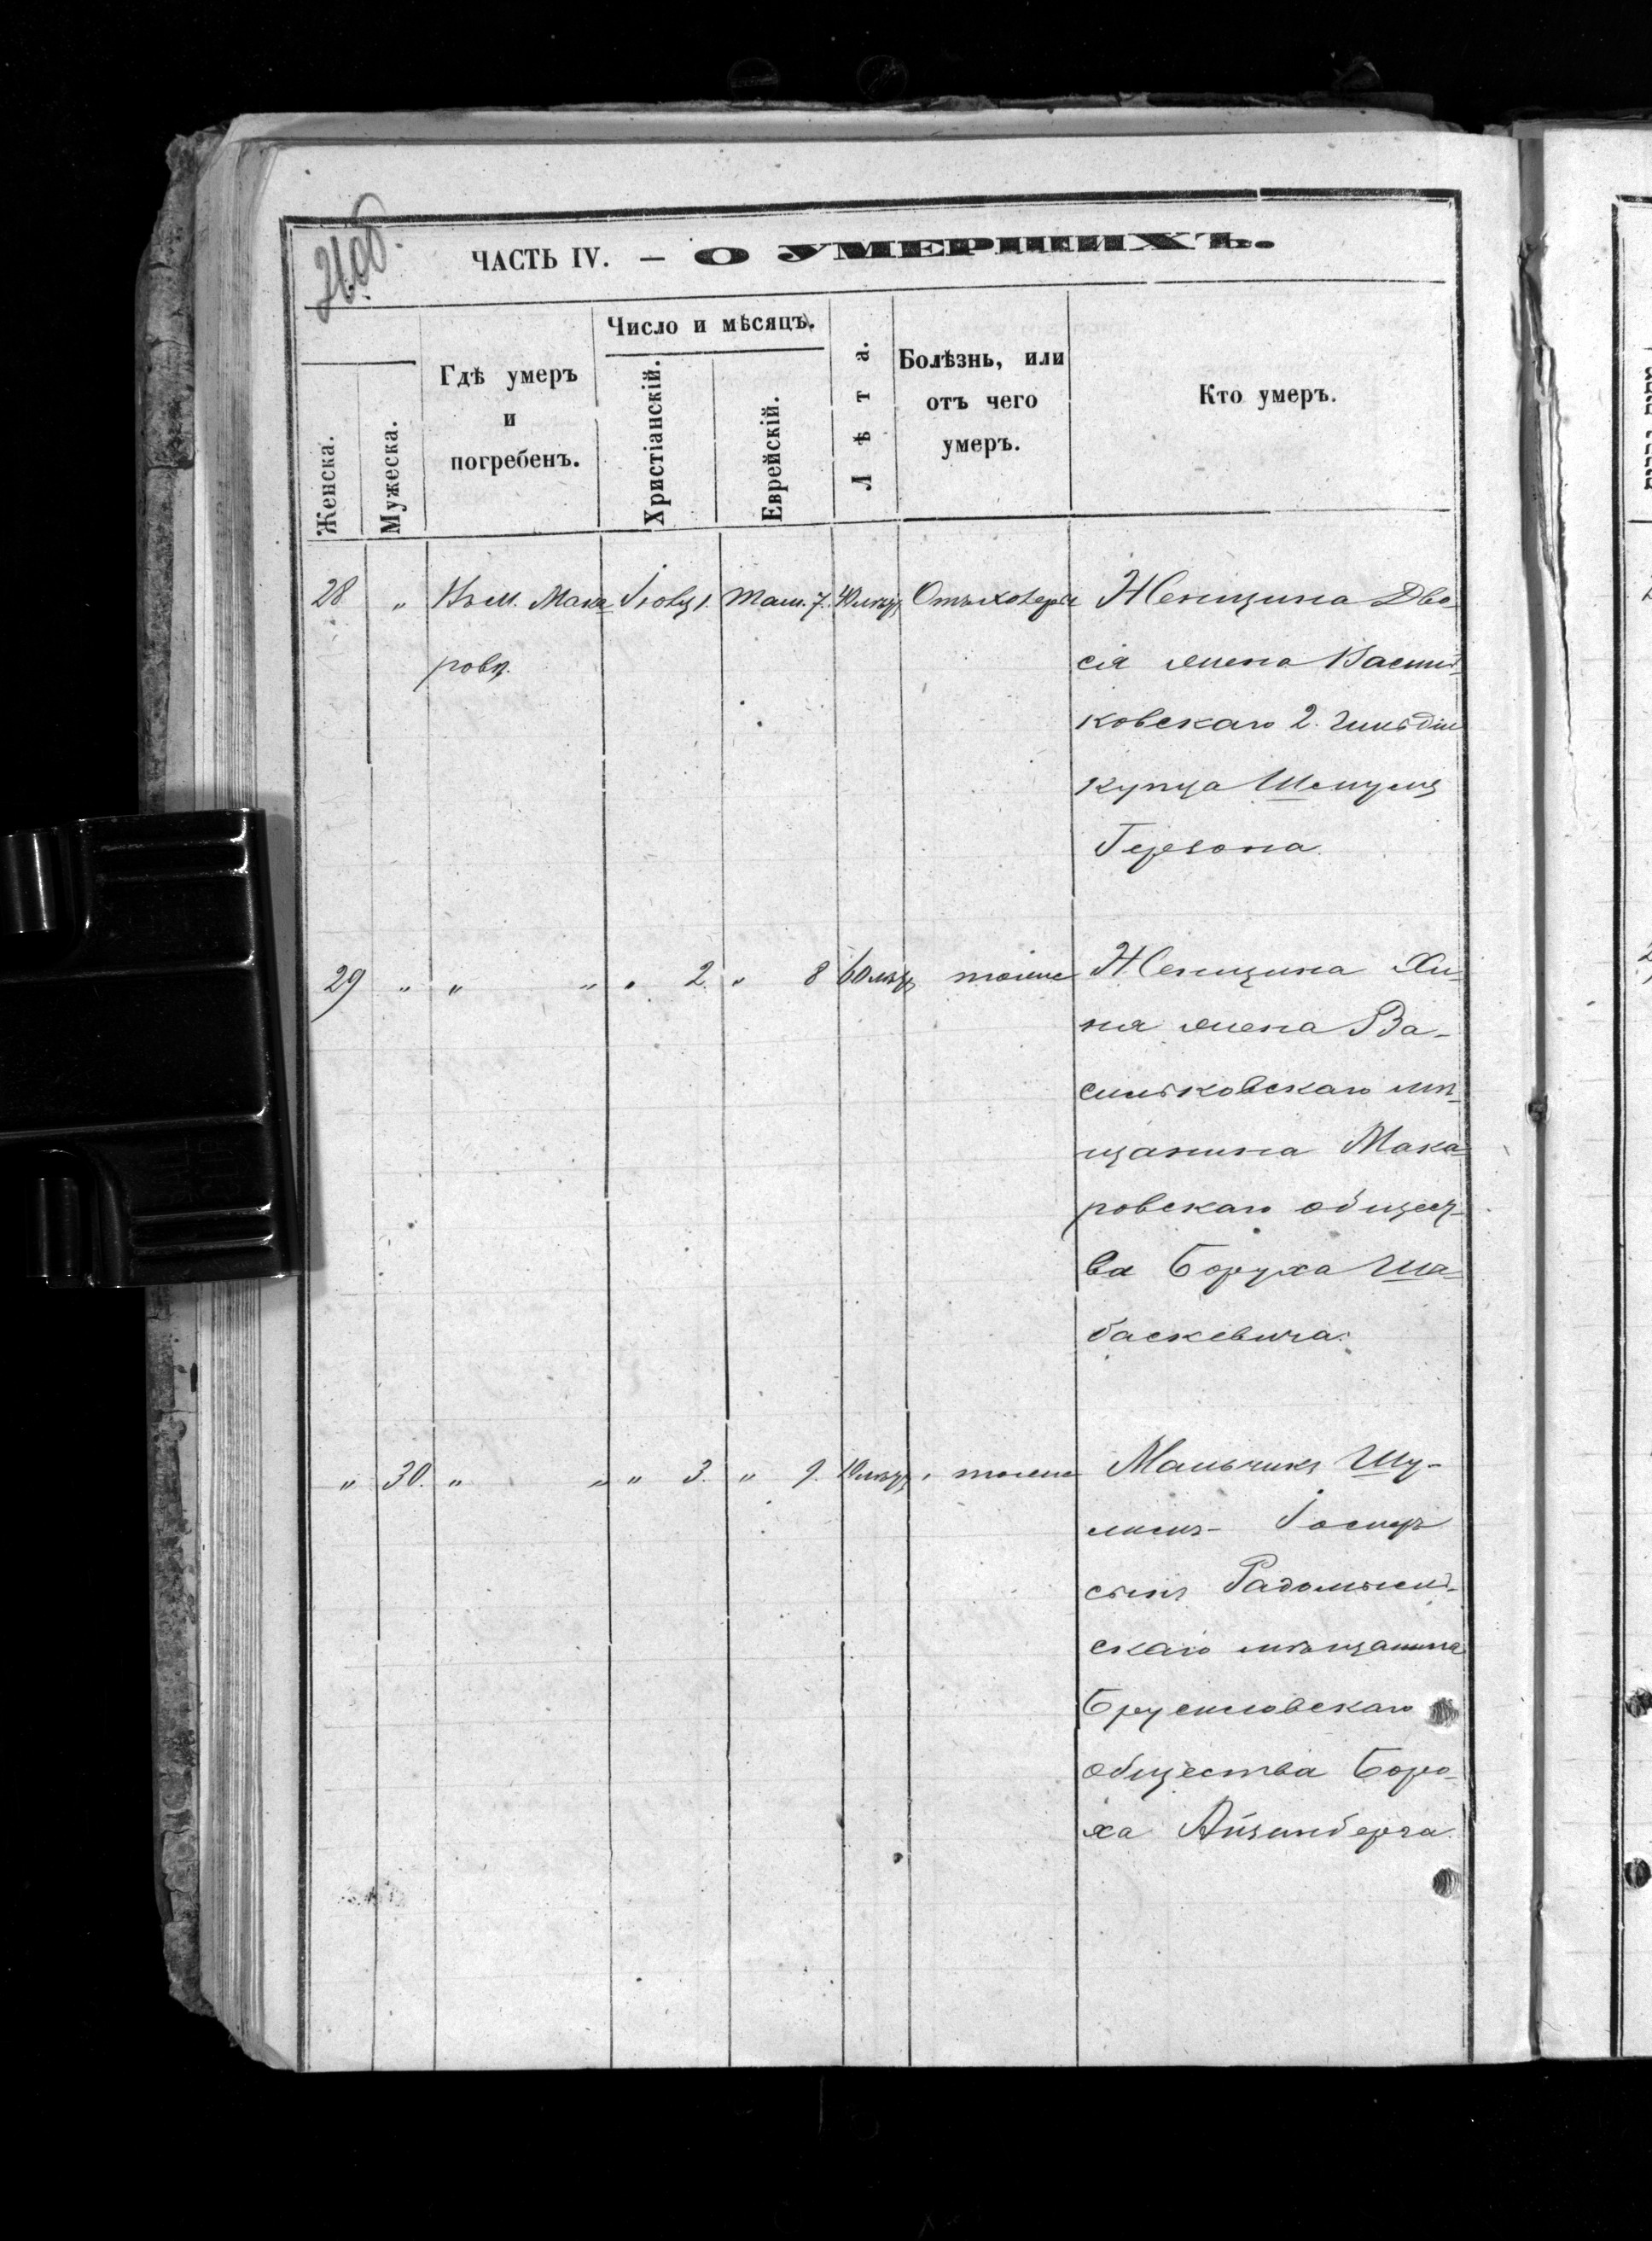 21об.
ЧАСТЬ IV. — О УМЕРШИХЪ.
Женска.
Мужеска.
Гдѣ умеръ
и
погребенъ.
Число и мѣсяцъ.
Христіанскій.
Еврейскій.
Лѣта.
Болѣзнь, или
отъ чего
умеръ.
Кто умеръ.
28 „ Въ м. Мака- Іюля 1. Там. 7. 40 лѣтъ Отъ холеры Женщина Две-
ровѣ. сія жена Василь-
ковскаго 2. гильдіи
купца Шмуля
Герзона.
29 „ „ „ „ 2. „ 8 60 лѣтъ тоже Женщина Хи-
ня жена Ва-
сильковскаго мѣ-
щанина Мака-
ровскаго общест-
ва Боруха Ша-
баскевича.
„ 30. „ „ „ 3. „ 9. 10 лѣтъ тоже Мальчикъ Шу-
лимъ- Іосифъ
сынъ Радомысль-
скаго мѣщанина
Брусиловскаго
общества Боро-
ха Айзинберга.